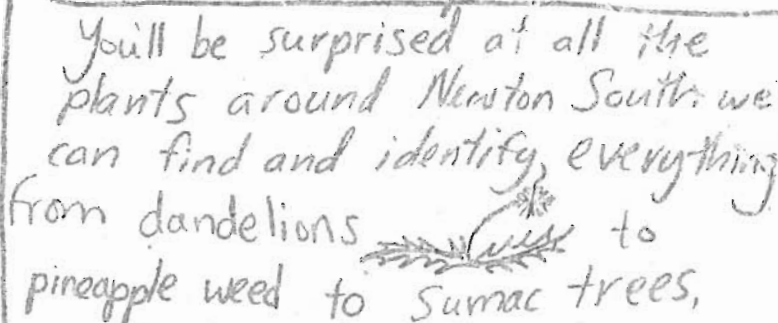 You'll be surprised at all the
plants around Newton South we
can find and identify, everything
from dandelions to
pineapple weed to sumac trees,